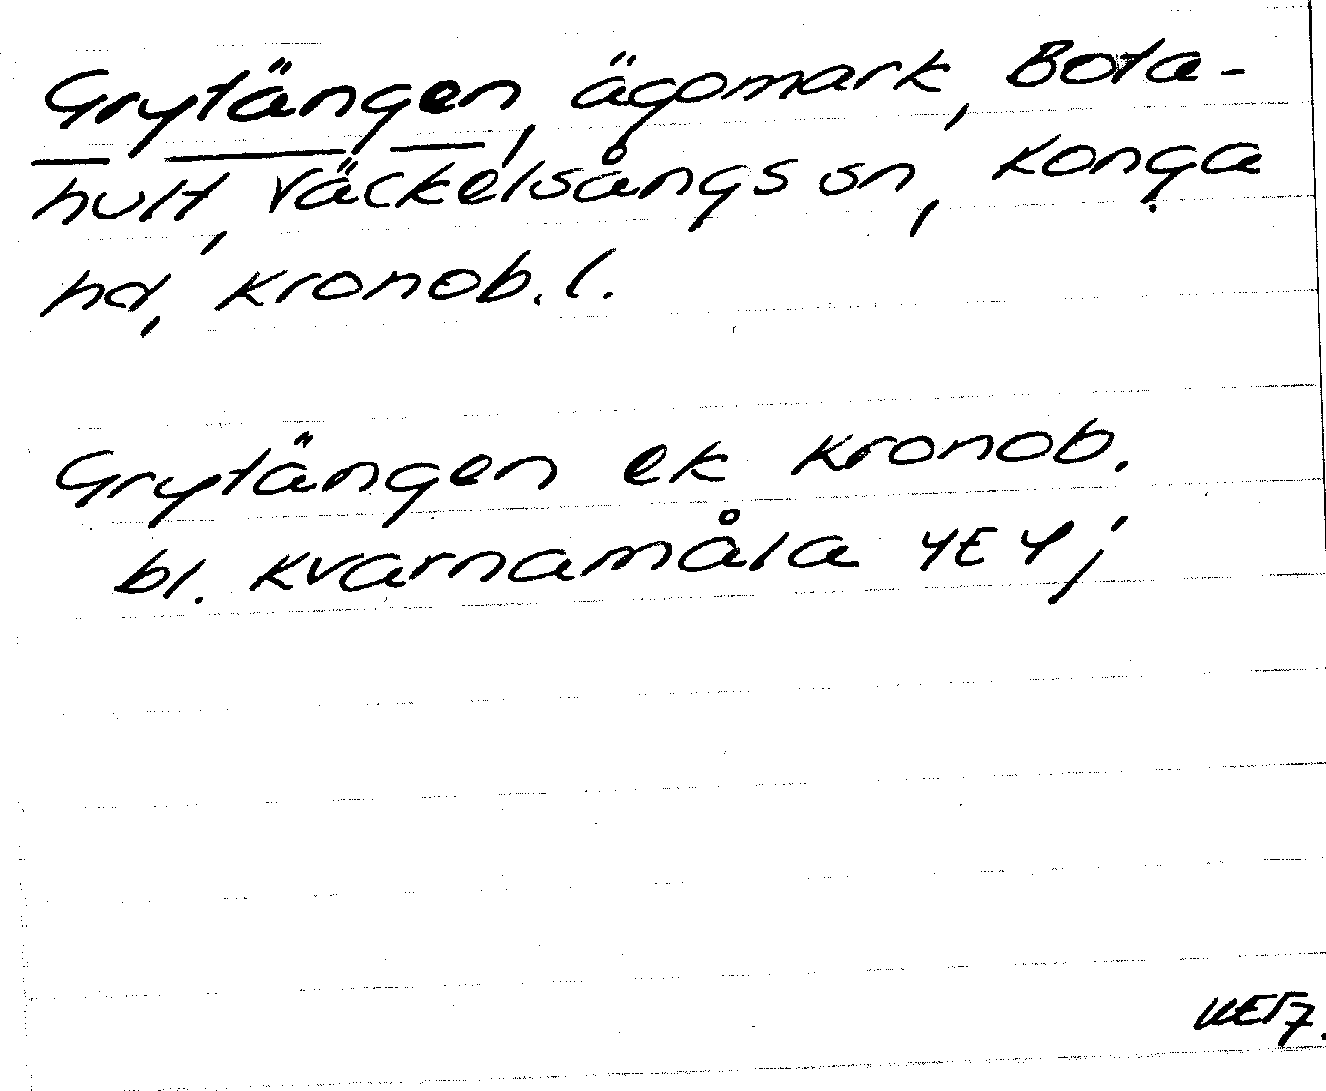 Grytängen, ägomark, Bota-
hult, Väckelsångs sn, Konga
hd, Kronob. l.
Grytängen ek Kronob.
bl. Kvarnamåla 4E 4j